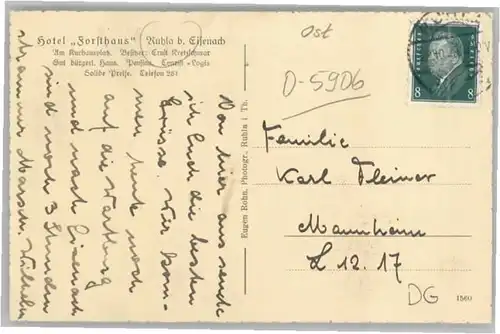 Hotel „Forsthaus" Ruhla b. Eisenach
Am Kurhausplatz. Besitzer: Ernst Kretschmar
Gut bürgerl. Haus. Pension. Touristen-Logis
Solide Preise. Telefon 281
Von hier aus sende
ich Euch die besten
Grüsse. Wir kom-
men heut noch
auf die Wartburg
nach Eisenach
sind noch 3 Stunden
Marsch. Wilhelm
Ost
D-5906
DEUTSCHES REICH
8 8
Eugen Rohn, Photogr., Ruhla i. Th.
Familie
Karl
Mannheim
L 12. 17
DG
1560